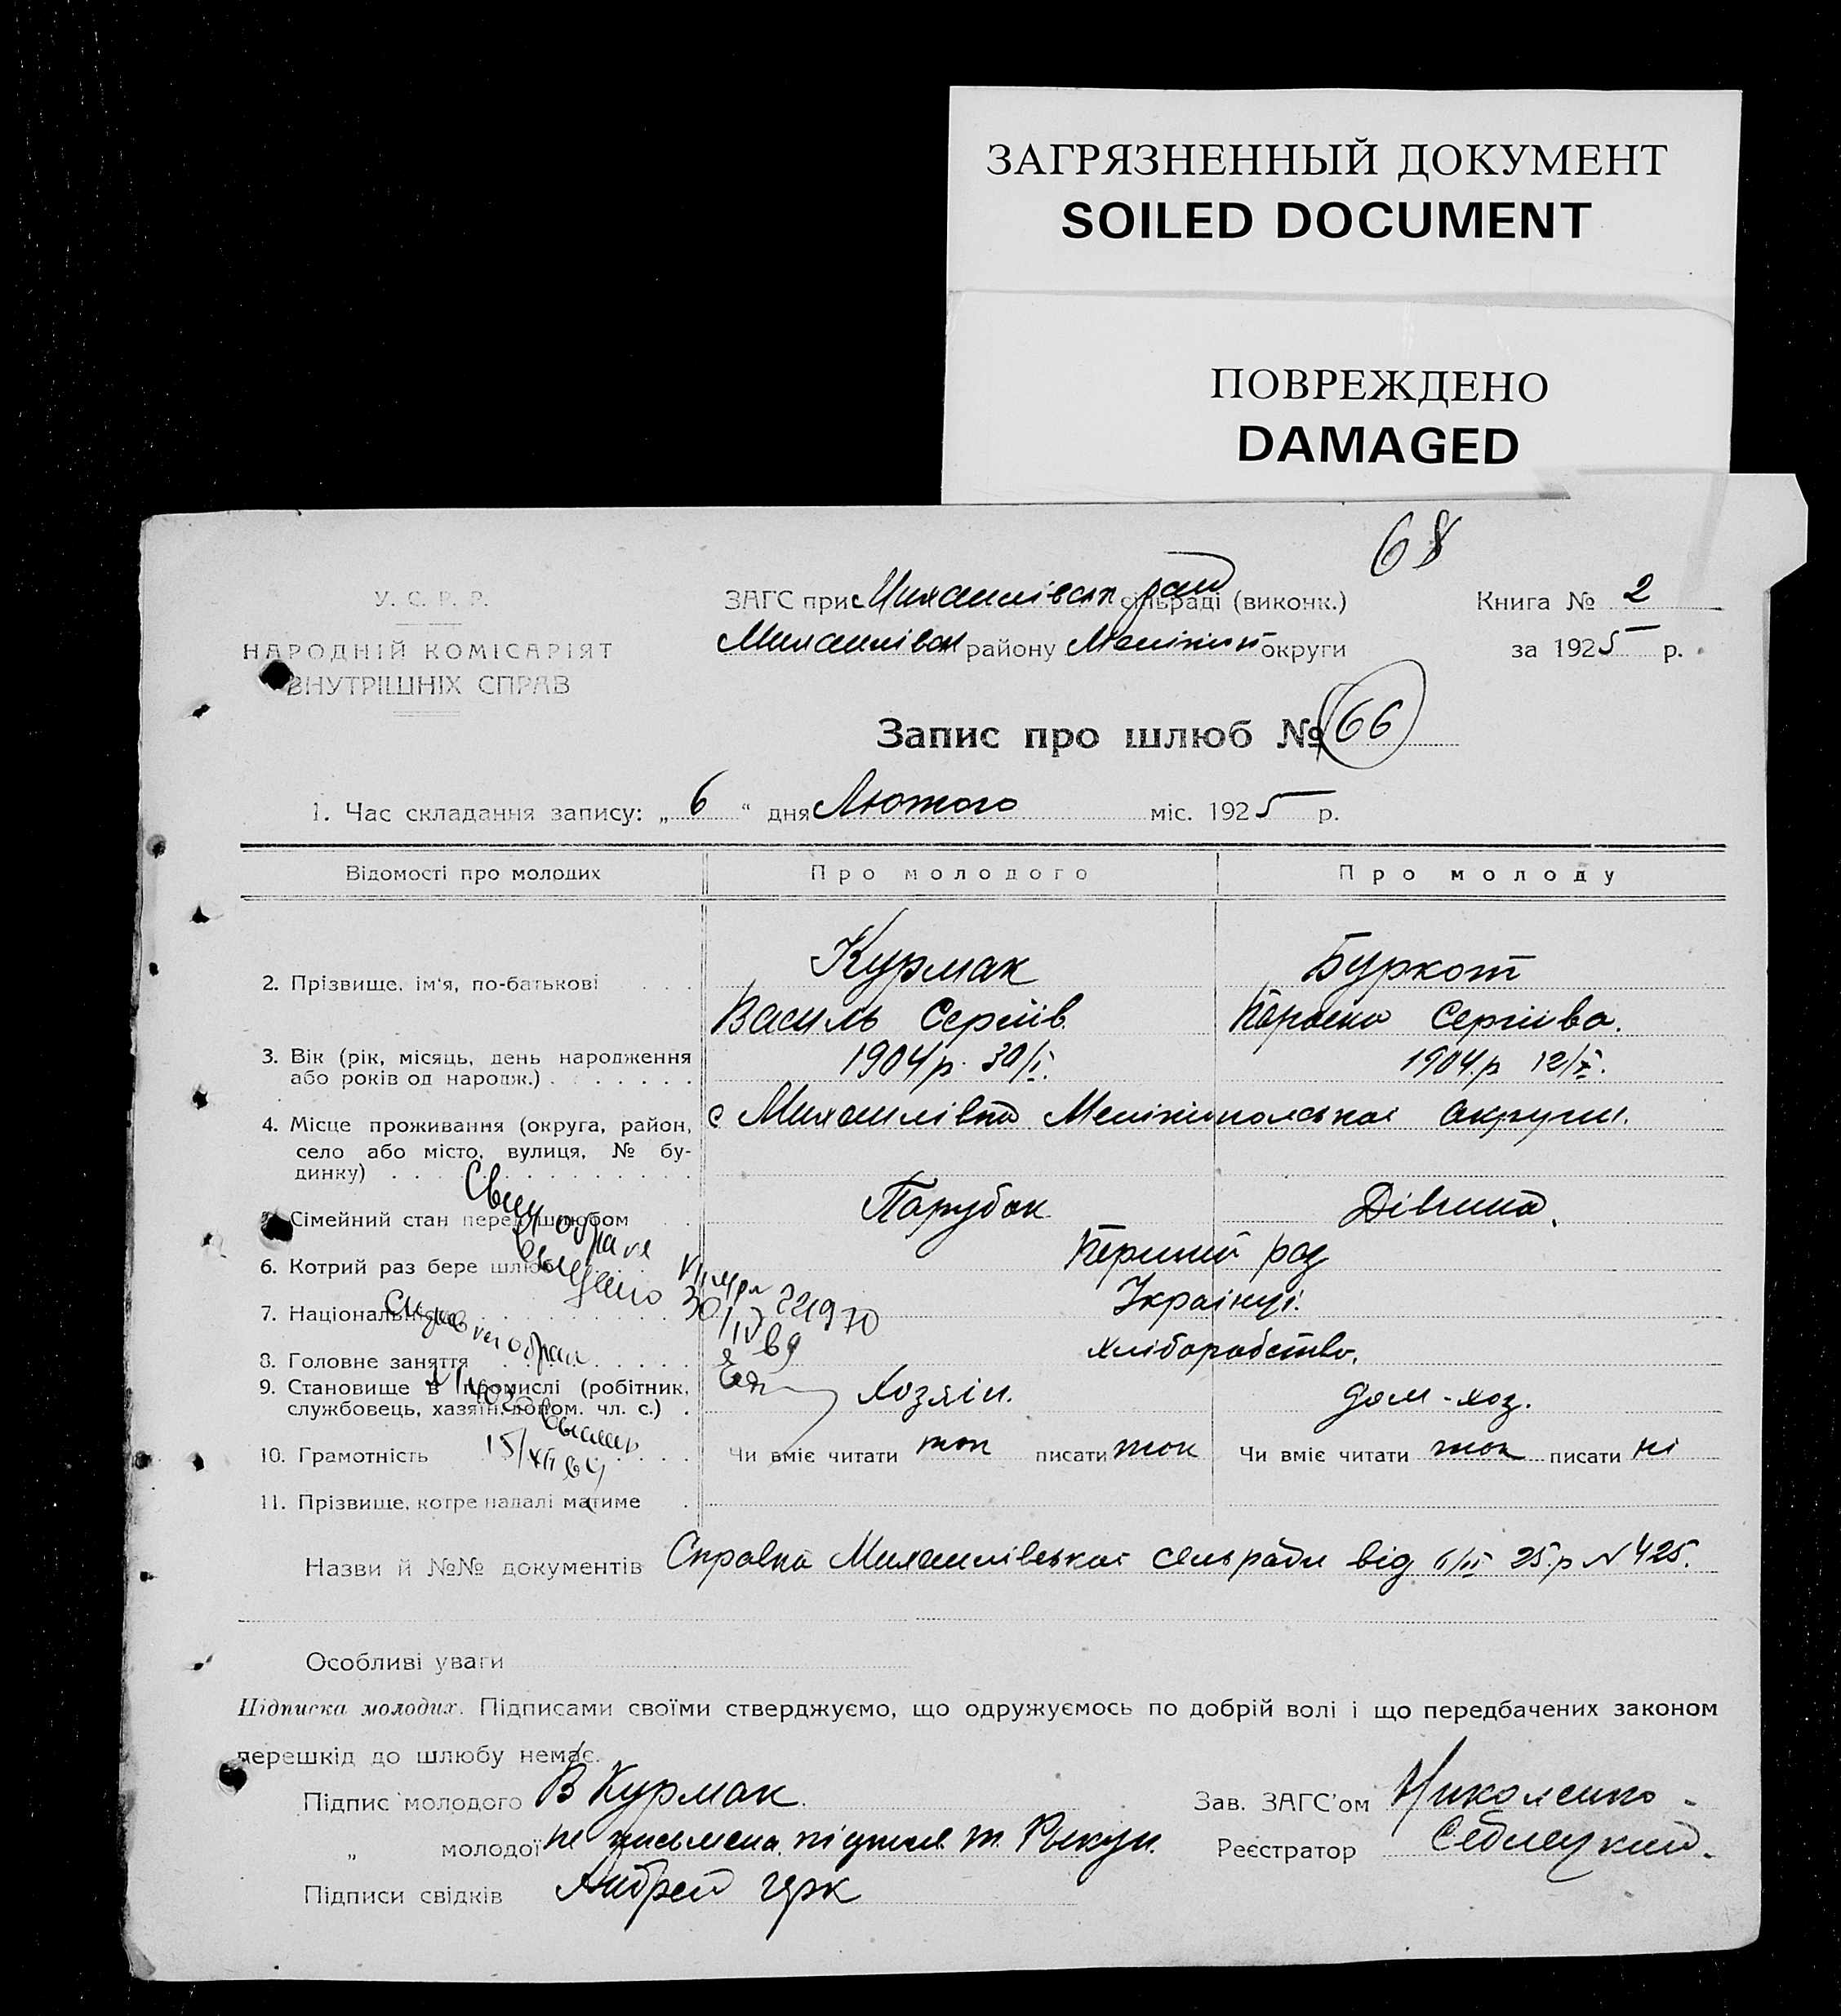 ЗАГРЯЗНЕННЫЙ ДОКУМЕНТ
SOILED DOCUMENT
ПОВРЕЖДЕНО
DAMAGED
68
У. С. Р. Р.
НАРОДНІЙ КОМІСАРІЯТ
ВНУТРІШНІХ СПРАВ
ЗАГС при Михайлівск рай сільраді (виконк.)
Михайлівск району Мелітоп округи
Книга № 2
за 1925 р.
Запис про шлюб № 66
1. Час складання запису: „ 6 “ дня Лютого міс. 1925 р.
Відомості про молодих Про молодого Про молоду
2. Прізвище, ім'я, по-батькові Курмак Буркот
Василь Сергіїв Сергіїва.
3. Вік (рік, місяць, день народження або років од народж.) 1904 р. 30/I. 1904 р 12/X.
4. Місце проживання (округа, район, село або місто, вулиця, № будинку) с Михайлівка Мелітопольської округи.
5. Сімейний стан перед шлюбом Парубок Дівчина.
6. Котрий раз бере шлюб Перший раз
7. Національність Українці.
8. Головне заняття хліборобство.
9. Становище в промислі (робітник, службовець, хазяїн, допом. чл. с.) Хозяін. дом-хоз.
10. Грамотність Чи вміє читати так писати так Чи вміє читати так писати ні
11. Прізвище, котре надалі матиме
Назви й №№ документів Справка Михайлівської сільради від 6/II 25 р N 425.
Особливі уваги
Підписка молодих. Підписами своїми стверджуємо, що одружуємось по добрій волі і що передбачених законом
перешкід до шлюбу немає.
Підпис молодого В Курмак.
„ молодої не письмена, підписав т.
Підписи свідків Андрей
Зав. ЗАГС'ом Николенко
Реєстратор Седлецкий.